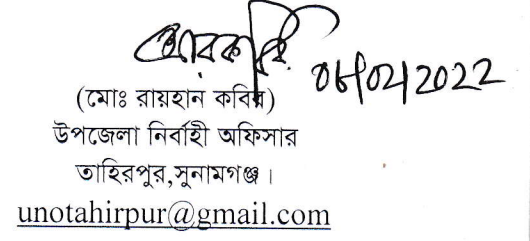 ০৮/০২/2022
(মোঃ রায়হান কবির)
উপজেলা নির্বাহী অফিসার
তাহিরপুর,সুনামগঞ্জ।
unotahirpur@gmail.com